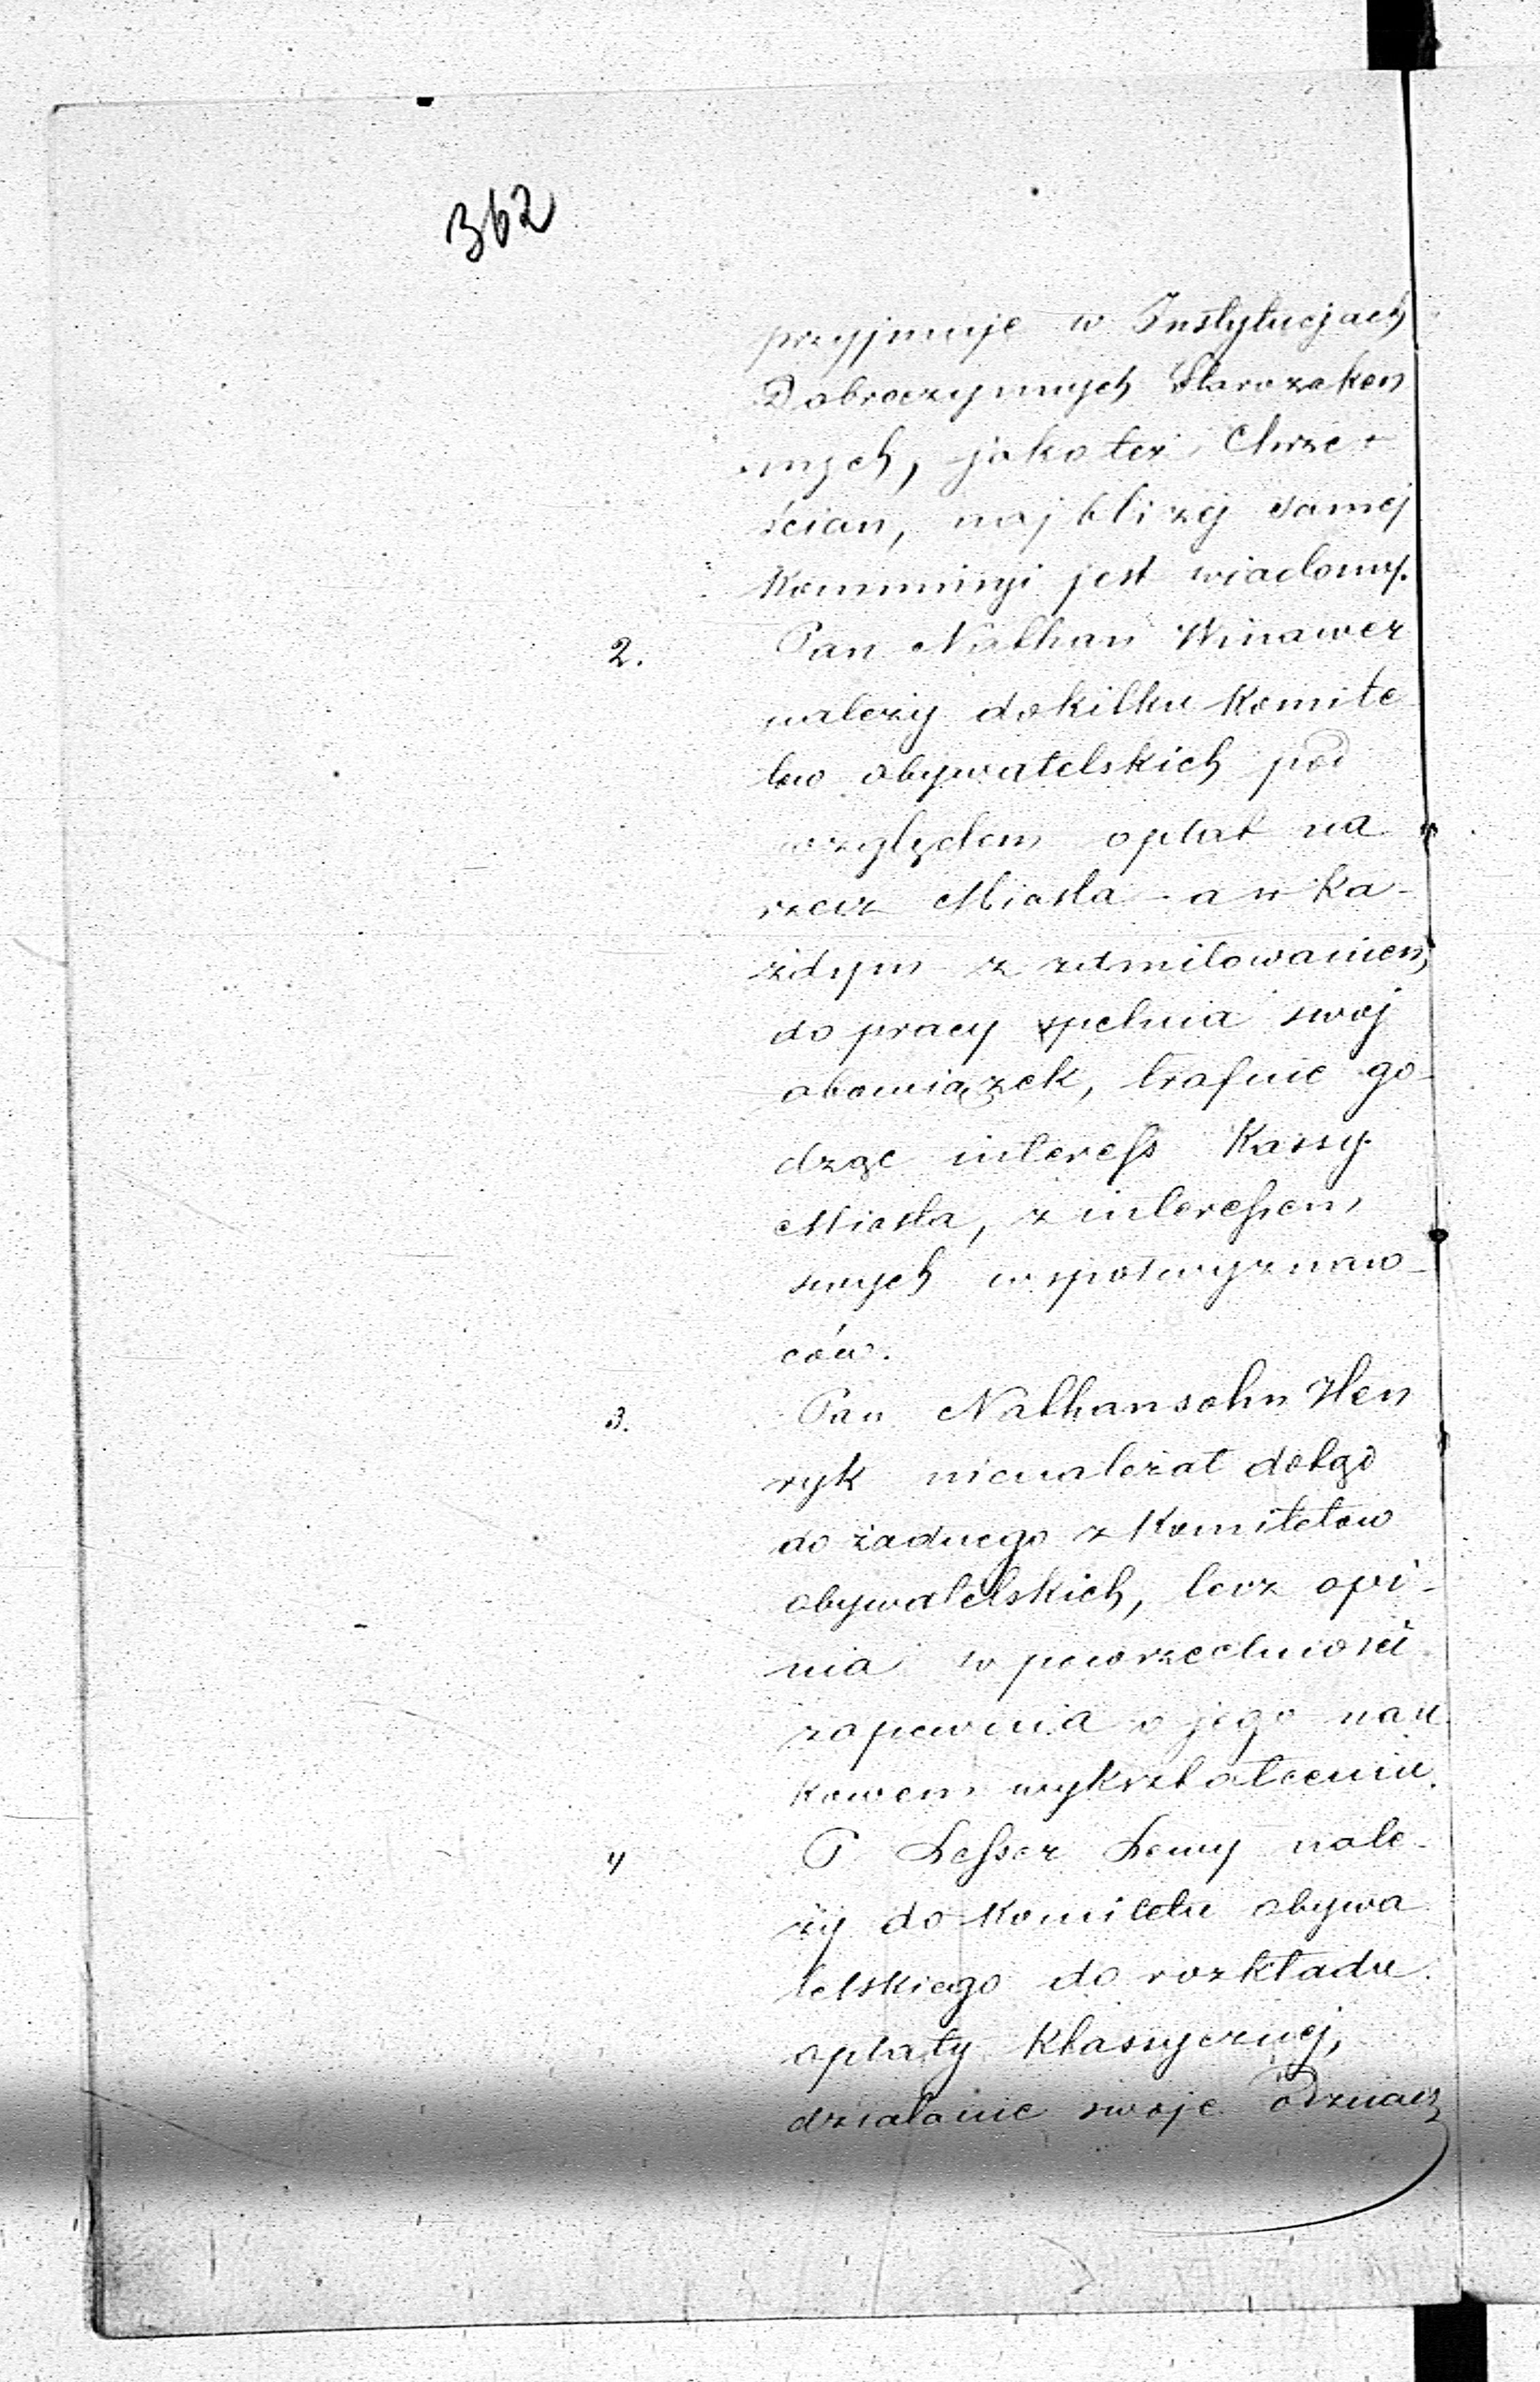 362
przyjmuje w Instytucjach
Dobroczynnych Starozakon
nych, jako też Chrze-
ścian, najbliżej samej
Kommisyi jest wiadomy.
2. Pan Nathan Winawer
należy do kilku Komite
tow obywatelskich pod
względem opłat na
rzecz Miasta - a w ka-
żdym z zamiłowaniem
do pracy spełnia swoj
obowiązek, trafnie go-
dząc interess Kassy
Miasta, z interessem
swych wspołwyznaw-
ców.
3. Pan Nathansohn Hen
ryk nienależał dotąd
do żadnego z Komitetow
obywatelskich, lecz opi-
nia w powszechności
zapewnia o jego nau
kowem wykształceniu.
4 P. Lesser Lewy nale-
ży do Komitetu obywa
telskiego do rozkładu
opłaty klassycznej,
działanie swoje odznacz